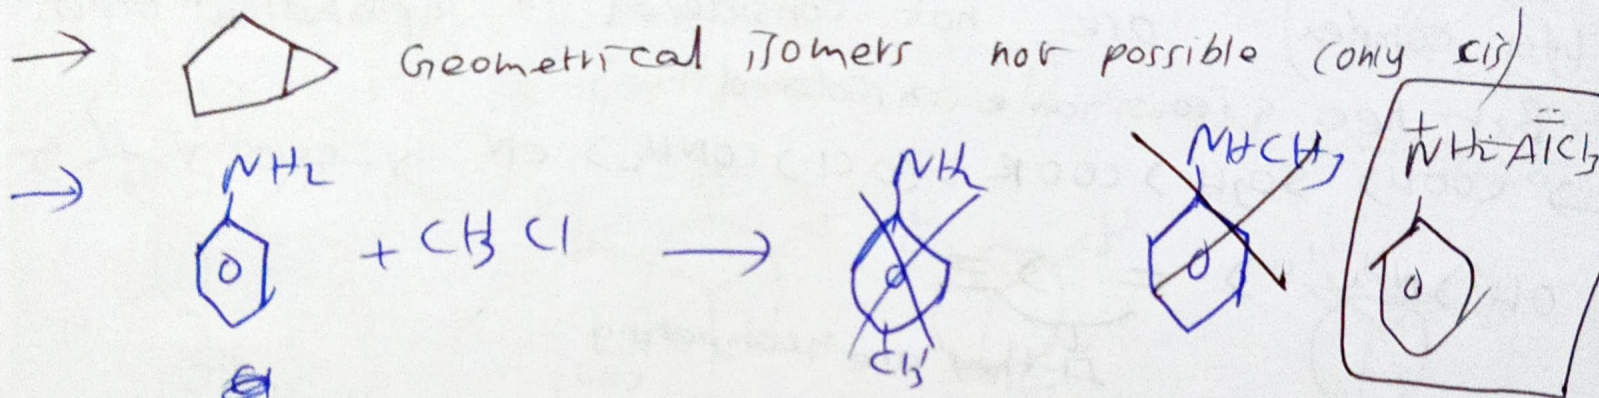 → Geometrical isomers not possible (only cis)
→ NH2 + CH3 Cl → NH2 NHCH3 +NH2-AlCl3
CH3